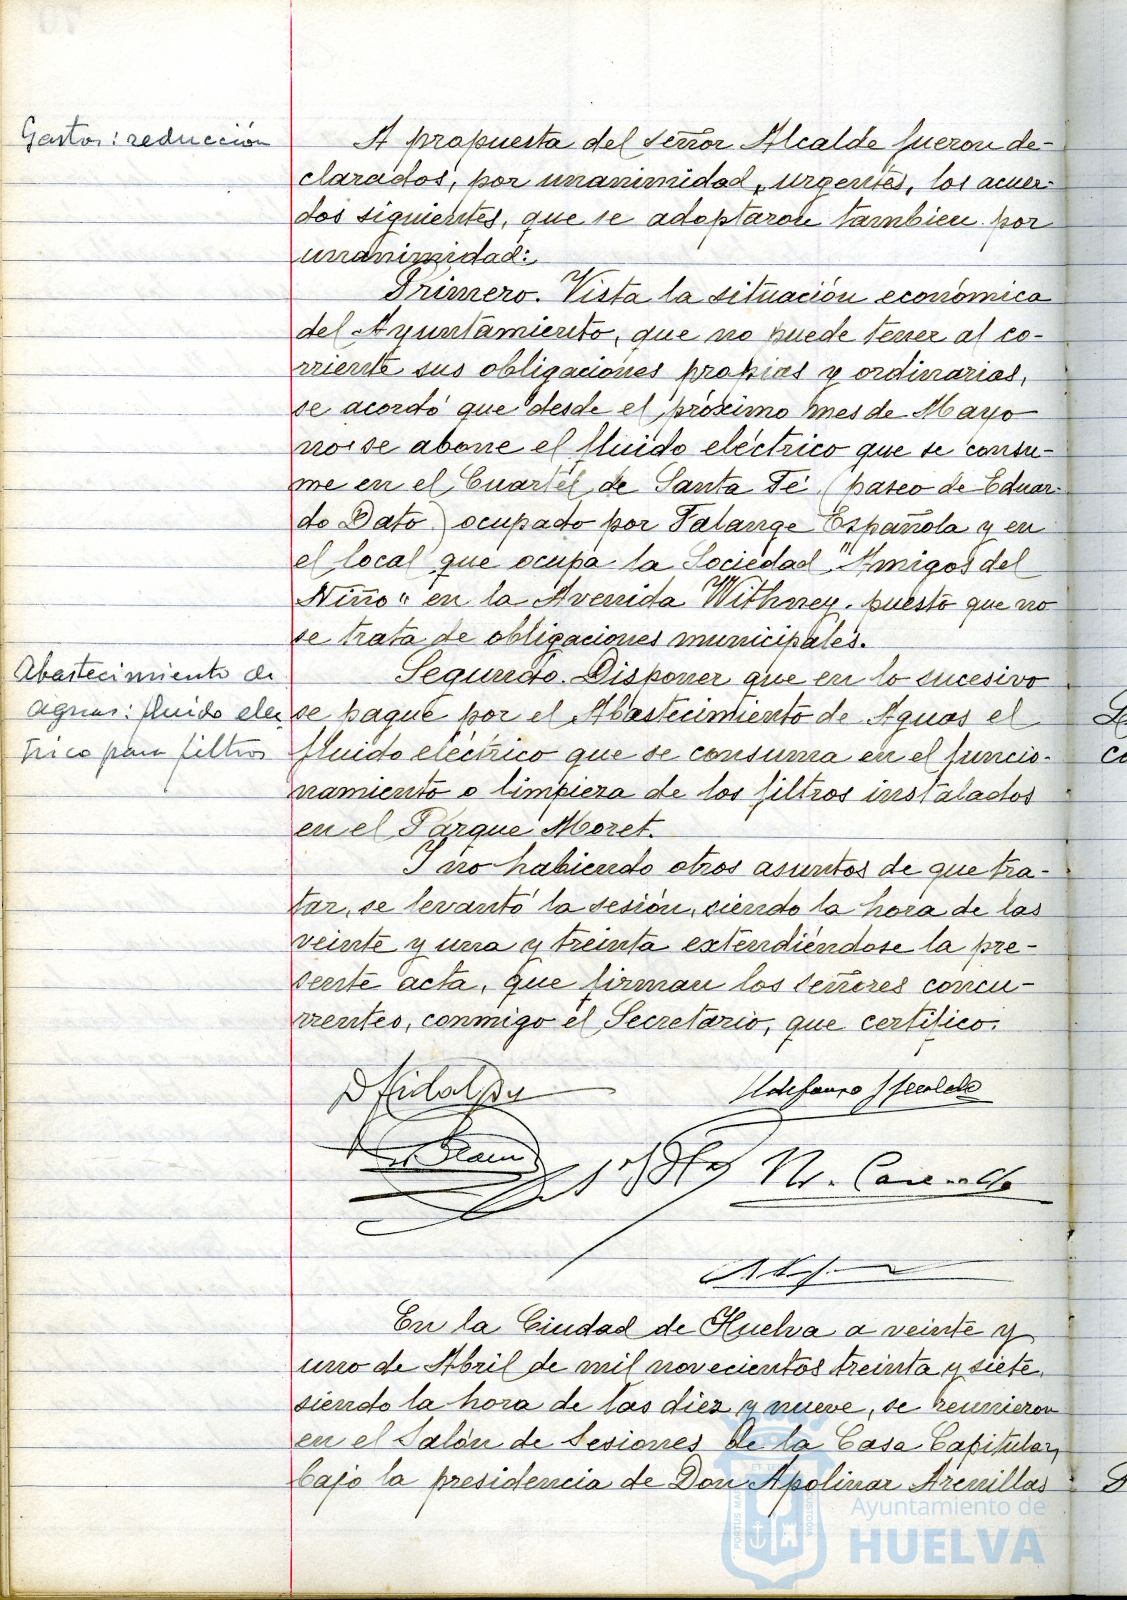 Gastos: reducción
A propuesta del señor Alcalde fueron de-
clarados, por unanimidad, urgentes, los acuer-
dos siguientes, que se adoptaron tambien por
unanimidad:
Primero. Vista la situación económica
del Ayuntamiento, que no puede tener al co-
rriente sus obligaciones propias y ordinarias,
se acordó que desde el próximo mes de Mayo
no se abone el fluido eléctrico que se consu-
me en el Cuartel de Santa Fé (paseo de Eduar-
do Dato) ocupado por Falange Española y en
el local que ocupa la Sociedad "Amigos del
Niño" en la Avenida Withney. puesto que no
se trata de obligaciones municipales.
Abastecimiento de
aguas: fluido eléc
trico para filtros
Segundo. Disponer que en lo sucesivo
se pague por el Abastecimiento de Aguas el
fluido eléctrico que se consuma en el funcio-
namiento o limpieza de los filtros instalados
en el Parque Moret.
Y no habiendo otros asuntos de que tra-
tar, se levantó la sesión, siendo la hora de las
veinte y una y treinta extendiéndose la pre-
sente acta, que firman los señores concu-
rrentes, conmigo el Secretario, que certifico.
En la Ciudad de Huelva a veinte y
uno de Abril de mil novecientos treinta y siete,
siendo la hora de las diez y nueve, se reunieron
en el Salón de Sesiones de la Casa Capitular,
bajo la presidencia de Don Apolinar Arenillas
Ayuntamiento de
HUELVA